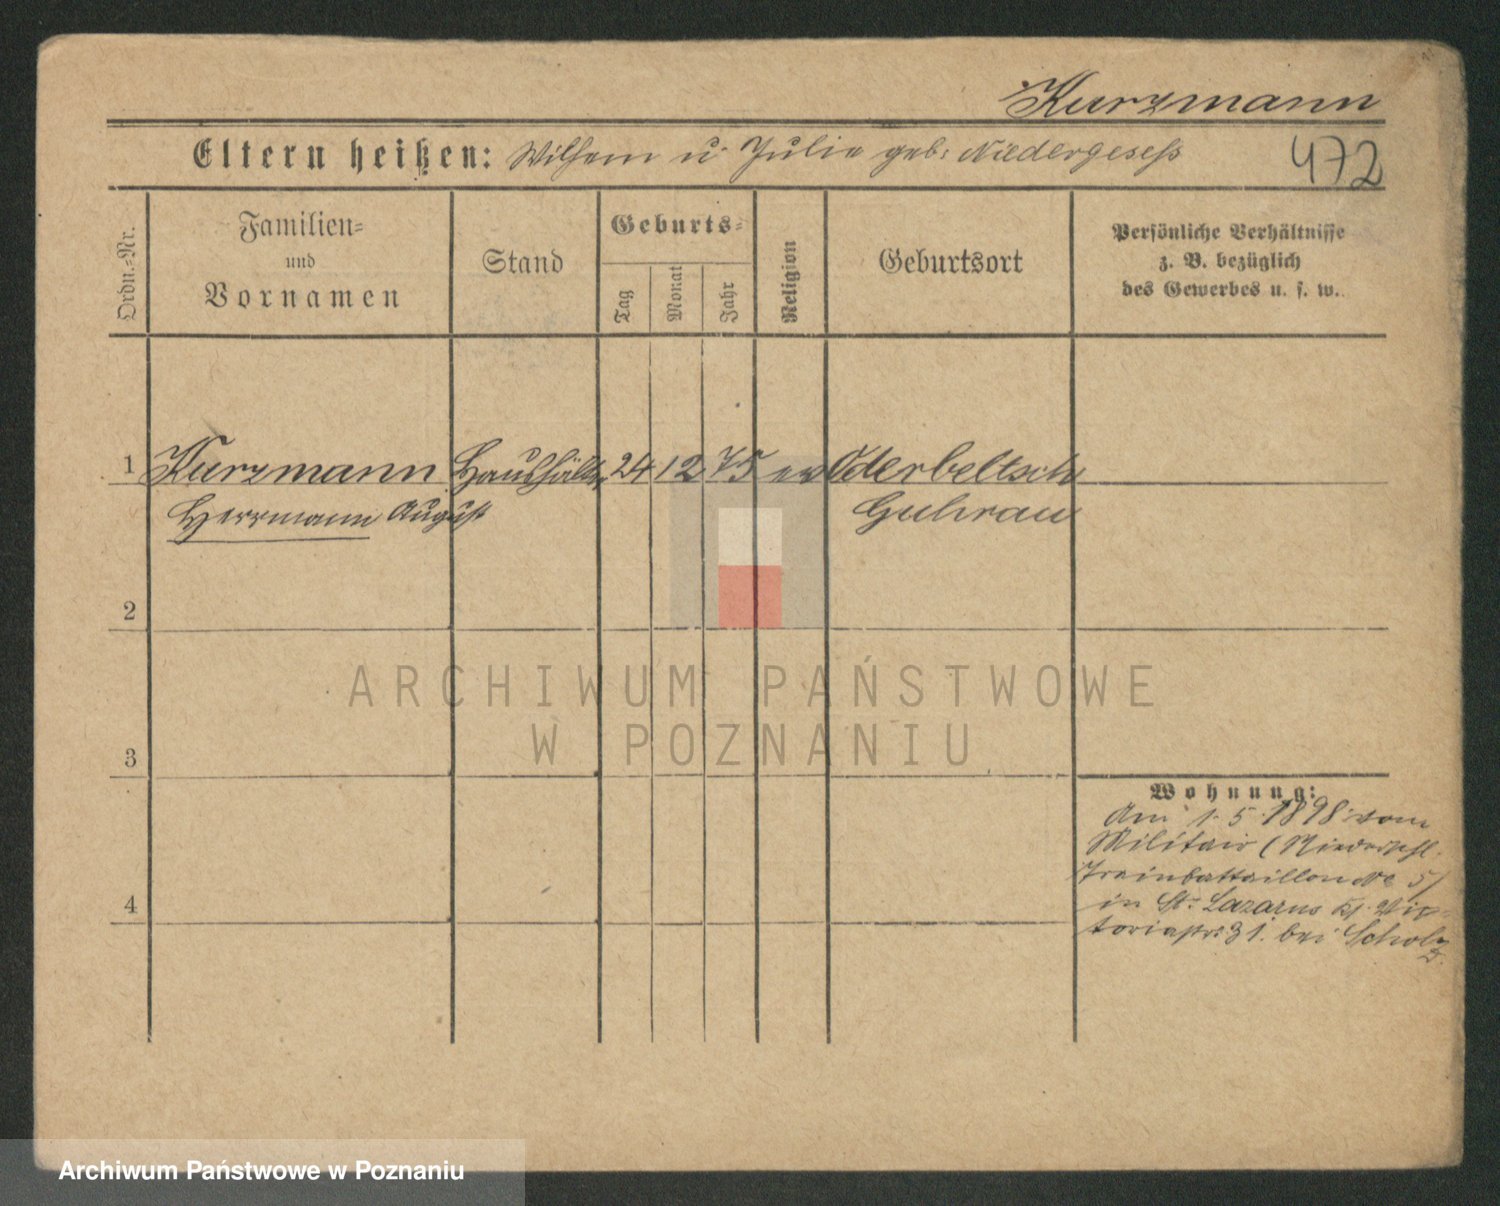 Kurzmann
Eltern heißen: Wilhem u. Julie geb: Niedergeseß
472
Ordn.=Nr.
Familien=
und
Vornamen
Stand
Geburts=
Tag
Monat
Jahr
Religion
Geburtsort
Persönliche Verhältnisse
z. B. bezüglich
des Gewerbes u. s. w.
1 Kurzmann Haushälter 24 12 75 ev Oderbeltsch
Herrmann August Guhrau
2
3
4
Wohnung:
Am 1. 5. 1898 vom
Militair (Niederschl.
Trainbattaillon No 5)
in St. Lazarus Vic=
toriastr. 31. bei Scholz
ARCHIWUM PAŃSTWOWE
W POZNANIU
Archiwum Państwowe w Poznaniu